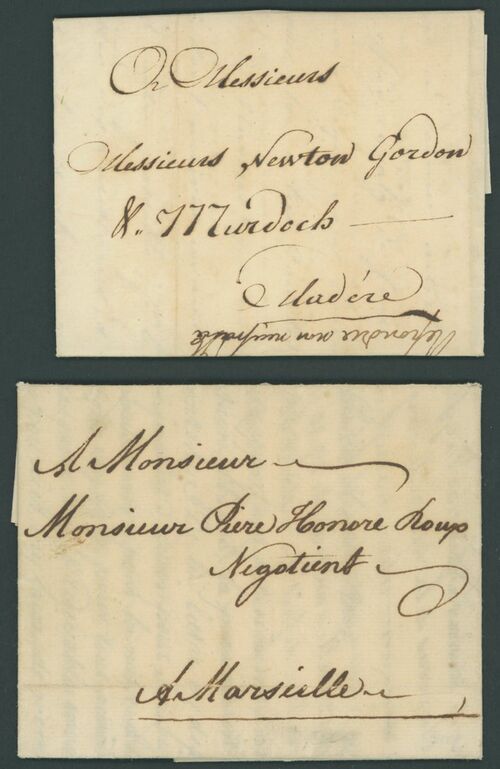 A Messieurs
Messieurs Newton Gordon
&. Murdoch
Madére
A Monsieur
Monsieur Piere Honore Roux
Negotient
A Marsielle